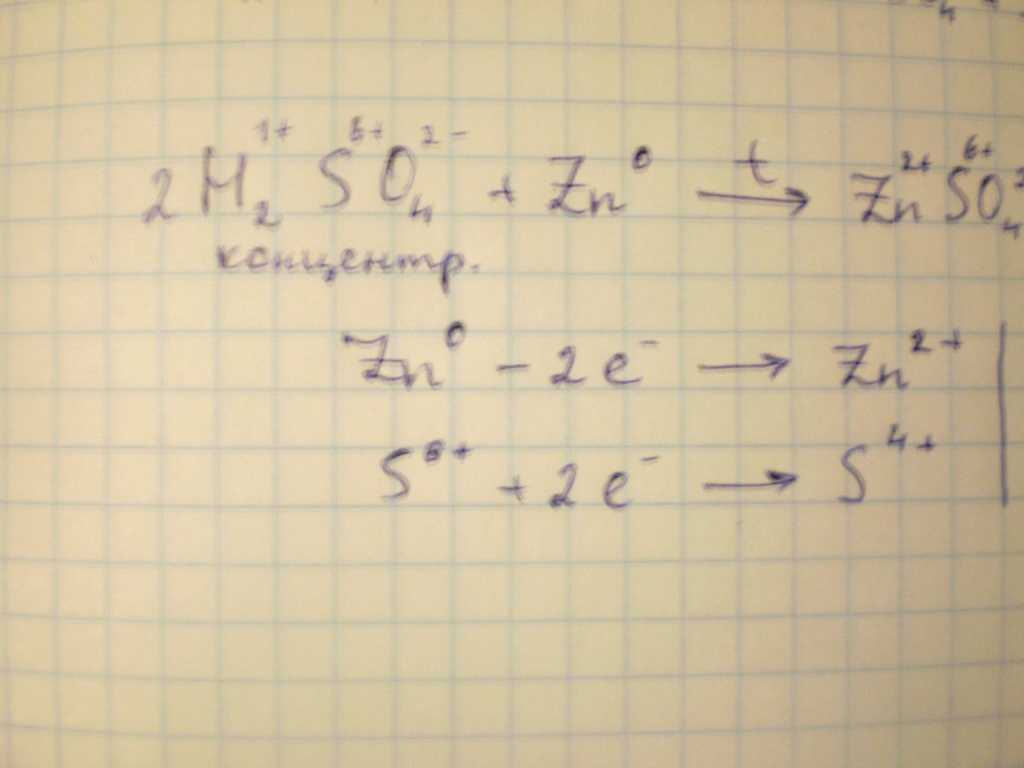 2H₂¹⁺S⁶⁺O₄²⁻ + Zn⁰ —t→ Zn²⁺S⁶⁺O₄²
концентр.
Zn⁰ − 2e⁻ → Zn²⁺ |
S⁶⁺ + 2e⁻ → S⁴⁺ |